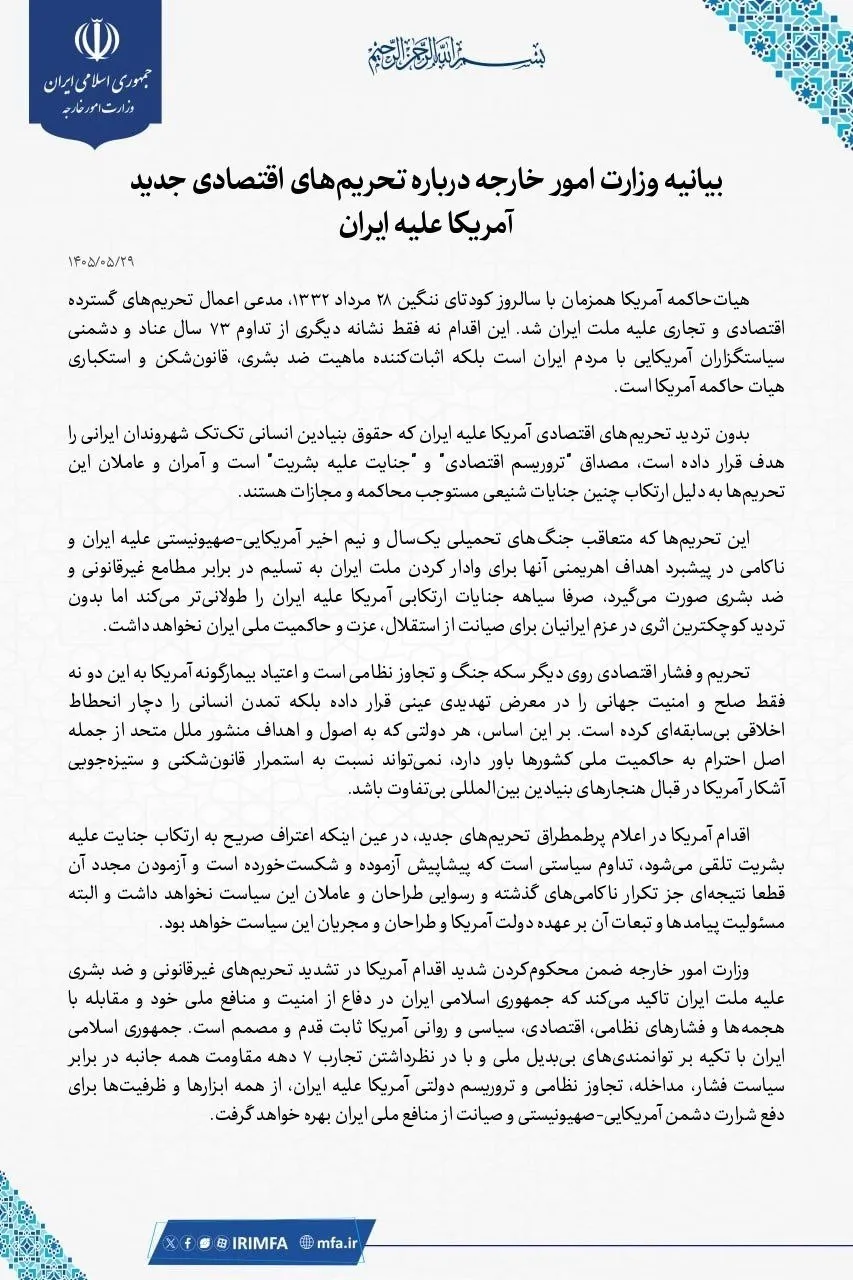 جمهوری اسلامی ایران
وزارت امور خارجه
بسم الله الرحمن الرحیم
بیانیه وزارت امور خارجه درباره تحریم‌های اقتصادی جدید
آمریکا علیه ایران
۱۴۰۵/۰۵/۲۹
هیات‌حاکمه آمریکا همزمان با سالروز کودتای ننگین ۲۸ مرداد ۱۳۳۲، مدعی اعمال تحریم‌های گسترده
اقتصادی و تجاری علیه ملت ایران شد. این اقدام نه فقط نشانه دیگری از تداوم ۷۳ سال عناد و دشمنی
سیاستگزاران آمریکایی با مردم ایران است بلکه اثبات‌کننده ماهیت ضد بشری، قانون‌شکن و استکباری
هیات حاکمه آمریکا است.
بدون تردید تحریم‌های اقتصادی آمریکا علیه ایران که حقوق بنیادین انسانی تک‌تک شهروندان ایرانی را
هدف قرار داده است، مصداق "تروریسم اقتصادی" و "جنایت علیه بشریت" است و آمران و عاملان این
تحریم‌ها به دلیل ارتکاب چنین جنایات شنیعی مستوجب محاکمه و مجازات هستند.
این تحریم‌ها که متعاقب جنگ‌های تحمیلی یک‌سال و نیم اخیر آمریکایی-صهیونیستی علیه ایران و
ناکامی در پیشبرد اهداف اهریمنی آنها برای وادار کردن ملت ایران به تسلیم در برابر مطامع غیرقانونی و
ضد بشری صورت می‌گیرد، صرفا سیاهه جنایات ارتکابی آمریکا علیه ایران را طولانی‌تر می‌کند اما بدون
تردید کوچکترین اثری در عزم ایرانیان برای صیانت از استقلال، عزت و حاکمیت ملی ایران نخواهد داشت.
تحریم و فشار اقتصادی روی دیگر سکه جنگ و تجاوز نظامی است و اعتیاد بیمارگونه آمریکا به این دو نه
فقط صلح و امنیت جهانی را در معرض تهدیدی عینی قرار داده بلکه تمدن انسانی را دچار انحطاط
اخلاقی بی‌سابقه‌ای کرده است. بر این اساس، هر دولتی که به اصول و اهداف منشور ملل متحد از جمله
اصل احترام به حاکمیت ملی کشورها باور دارد، نمی‌تواند نسبت به استمرار قانون‌شکنی و ستیزه‌جویی
آشکار آمریکا در قبال هنجارهای بنیادین بین‌المللی بی‌تفاوت باشد.
اقدام آمریکا در اعلام پرطمطراق تحریم‌های جدید، در عین اینکه اعتراف صریح به ارتکاب جنایت علیه
بشریت تلقی می‌شود، تداوم سیاستی است که پیشاپیش آزموده و شکست‌خورده است و آزمودن مجدد آن
قطعا نتیجه‌ای جز تکرار ناکامی‌های گذشته و رسوایی طراحان و عاملان این سیاست نخواهد داشت و البته
مسئولیت پیامدها و تبعات آن بر عهده دولت آمریکا و طراحان و مجریان این سیاست خواهد بود.
وزارت امور خارجه ضمن محکوم‌کردن شدید اقدام آمریکا در تشدید تحریم‌های غیرقانونی و ضد بشری
علیه ملت ایران تاکید می‌کند که جمهوری اسلامی ایران در دفاع از امنیت و منافع ملی خود و مقابله با
هجمه‌ها و فشارهای نظامی، اقتصادی، سیاسی و روانی آمریکا ثابت قدم و مصمم است. جمهوری اسلامی
ایران با تکیه بر توانمندی‌های بی‌بدیل ملی و با در نظرداشتن تجارب ۷ دهه مقاومت همه جانبه در برابر
سیاست فشار، مداخله، تجاوز نظامی و تروریسم دولتی آمریکا علیه ایران، از همه ابزارها و ظرفیت‌ها برای
دفع شرارت دشمن آمریکایی-صهیونیستی و صیانت از منافع ملی ایران بهره خواهد گرفت.
IRIMFA mfa.ir